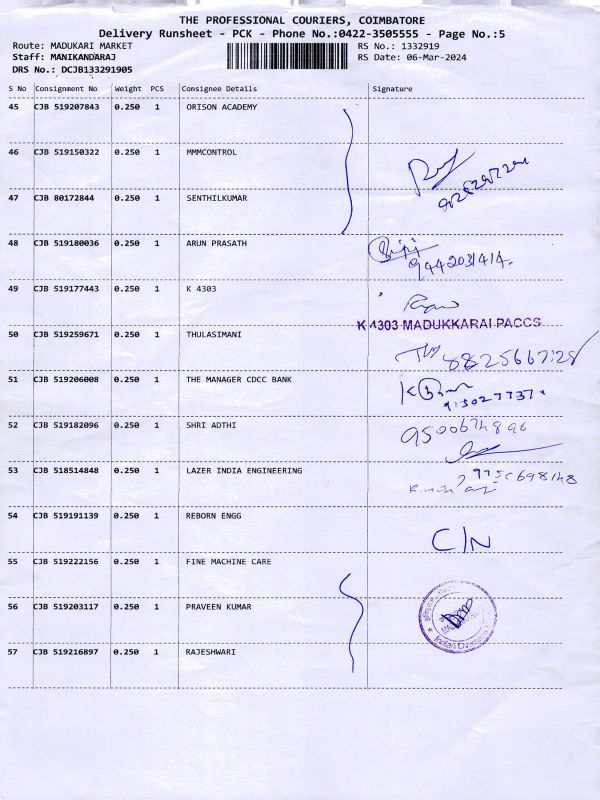 THE PROFESSIONAL COURIERS, COIMBATORE
Delivery Runsheet - PCK - Phone No.:0422-3505555 - Page No.:5
Route: MADUKARI MARKET RS No.: 1332919
Staff: MANIKANDARAJ RS Date: 06-Mar-2024
DRS No.: DCJB133291905
S No Consignment No Weight PCS Consignee Details Signature
45 CJB 519207843 0.250 1 ORISON ACADEMY
46 CJB 519150322 0.250 1 MMMCONTROL
47 CJB 80172844 0.250 1 SENTHILKUMAR
48 CJB 519180036 0.250 1 ARUN PRASATH
9442031414.
49 CJB 519177443 0.250 1 K 4303
K 4303 MADUKKARAI PACCS
50 CJB 519259671 0.250 1 THULASIMANI
51 CJB 519206008 0.250 1 THE MANAGER CDCC BANK
52 CJB 519182096 0.250 1 SHRI ADTHI
53 CJB 518514848 0.250 1 LAZER INDIA ENGINEERING
54 CJB 519191139 0.250 1 REBORN ENGG
C/N
55 CJB 519222156 0.250 1 FINE MACHINE CARE
56 CJB 519203117 0.250 1 PRAVEEN KUMAR
Indian Overseas
57 CJB 519216897 0.250 1 RAJESHWARI